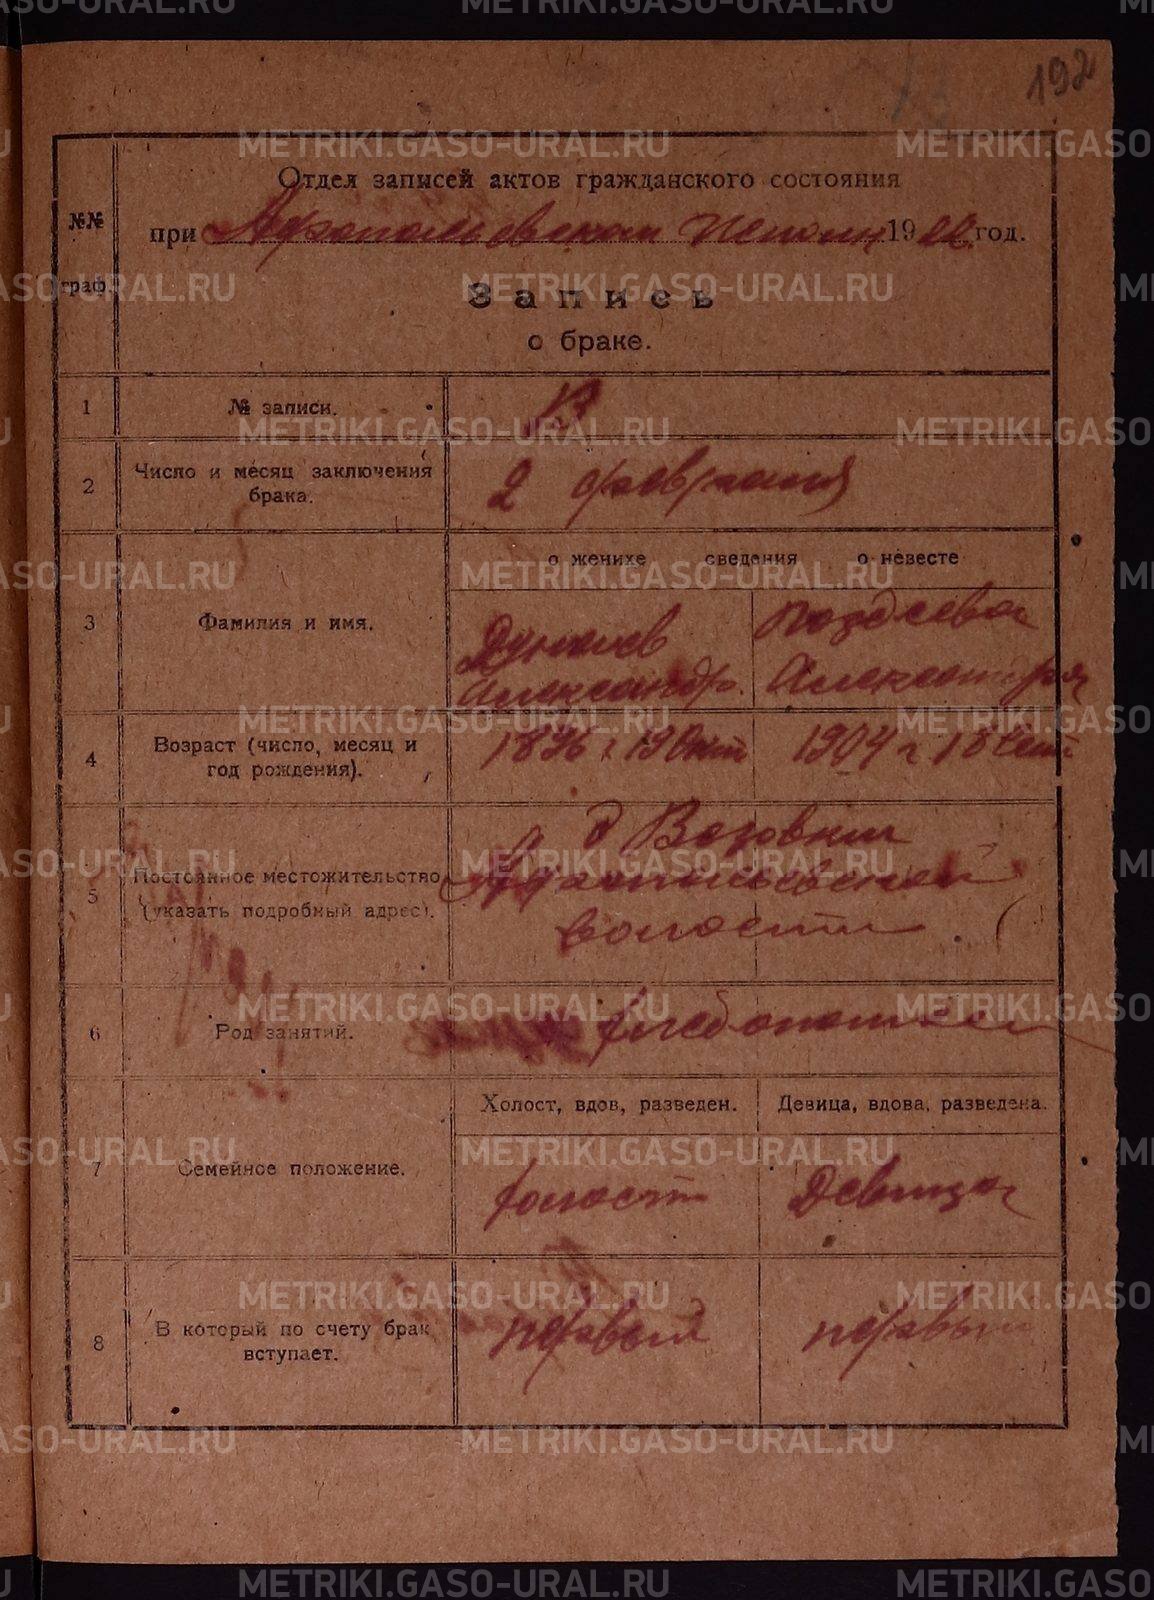 192
Отдел записей актов гражданского состояния
№№ граф.
при Афанасьевском Исполк. 1922 год.
Запись
о браке.
1 № записи. 13
2 Число и месяц заключения брака. 2 февраля
о женихе сведения о невесте
3 Фамилия и имя.
Дунаев Александр.
Поздеева Александра
4 Возраст (число, месяц и год рождения).
1896 г. 19 Окт
1904 г 18 Сент
5 Постоянное местожительство (указать подробный адрес).
д
волости
6 Род занятий. хлебопашец
Холост, вдов, разведен. Девица, вдова, разведена.
7 Семейное положение. холост Девица
8 В который по счету брак вступает. первый первый
METRIKI.GASO-URAL.RU